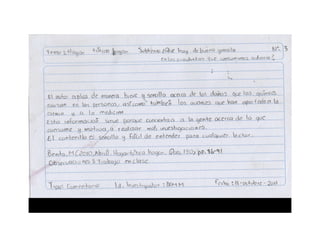 Tema: Hogar Tóxico hogar Subtema: ¿Qué hay de bueno y malo Nº: 3
en los cosméticos que consumimos a diario?
El autor explica de manera breve y sencilla acerca de los daños que los químicos
causan en las personas, así como también los avances que han aportado a la
ciencia y a la medicina.
Esta información sirve porque concientiza a la gente acerca de lo que
consume y motiva a realizar más investigaciones.
El contenido es sencillo y fácil de entender para cualquier lector.
Benito, M. (2010, Abril). Hogar tóxico hogar. Quo, (150) pp. 86-91
Observaciones: Trabajo en clase
Tipo: Comentario Id. Investigador: BAMM Fecha: octubre-2011